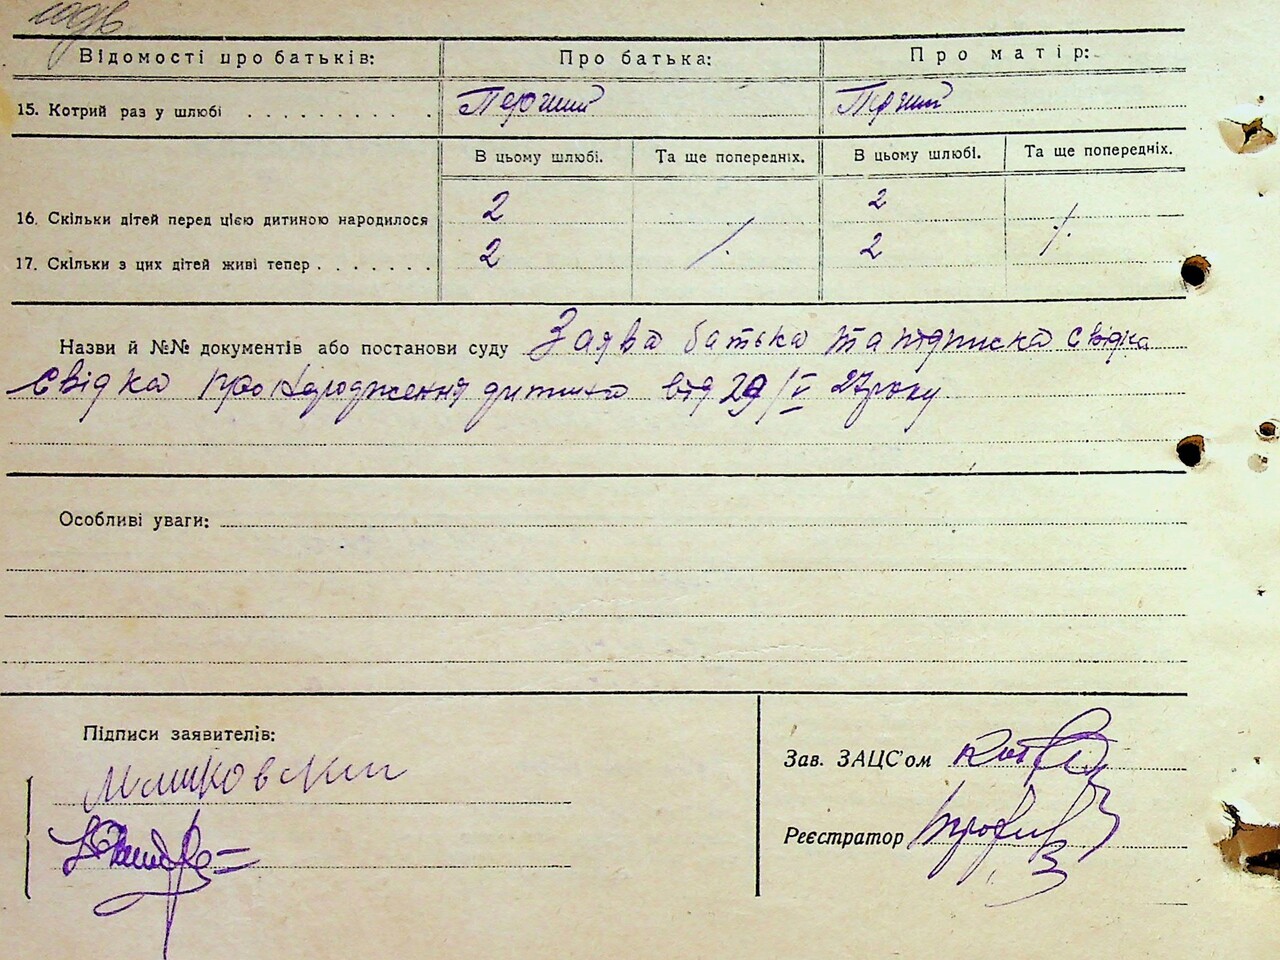 Відомості про батьків: Про батька: Про матір:
15. Котрий раз у шлюбі Перший Перший
В цьому шлюбі. Та ще попередніх. В цьому шлюбі. Та ще попередніх.
16. Скільки дітей перед цією дитиною народилося 2 2
17. Скільки з цих дітей живі тепер 2 2
Назви й №№ документів або постанови суду Заява батька та підписка свідка
свідка про народження дитини від 29/V 27 року
Особливі уваги:
Підписи заявителів:
Зав. ЗАЦС'ом
Реєстратор